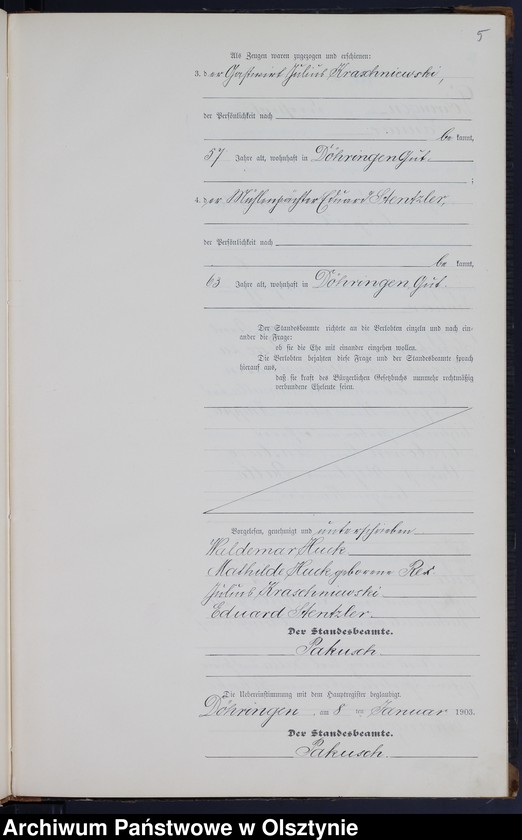 5
Als Zeugen waren zugezogen und erschienen:
3. der Gastwirt Julius Kraschniewski,
der Persönlichkeit nach
be kannt,
57 Jahre alt, wohnhaft in Döhringen Gut.
;
4. der Mühlenpächter Eduard Stentzler,
der Persönlichkeit nach
be kannt,
63 Jahre alt, wohnhaft in Döhringen Gut.
Der Standesbeamte richtete an die Verlobten einzeln und nach ein-
ander die Frage:
ob sie die Ehe mit einander eingehen wollen.
Die Verlobten bejahten diese Frage und der Standesbeamte sprach
hierauf aus,
daß sie kraft des Bürgerlichen Gesetzbuchs nunmehr rechtmäßig
verbundene Eheleute seien.
Vorgelesen, genehmigt und unterschrieben
Waldemar Huck
Mathilde Huck geborene Rex
Julius Kraschniewski
Eduard Stentzler
Der Standesbeamte.
Pakusch.
Die Uebereinstimmung mit dem Hauptregister beglaubigt.
Döhringen, am 8 ten Januar 1903.
Der Standesbeamte.
Pakusch.
Archiwum Państwowe w Olsztynie